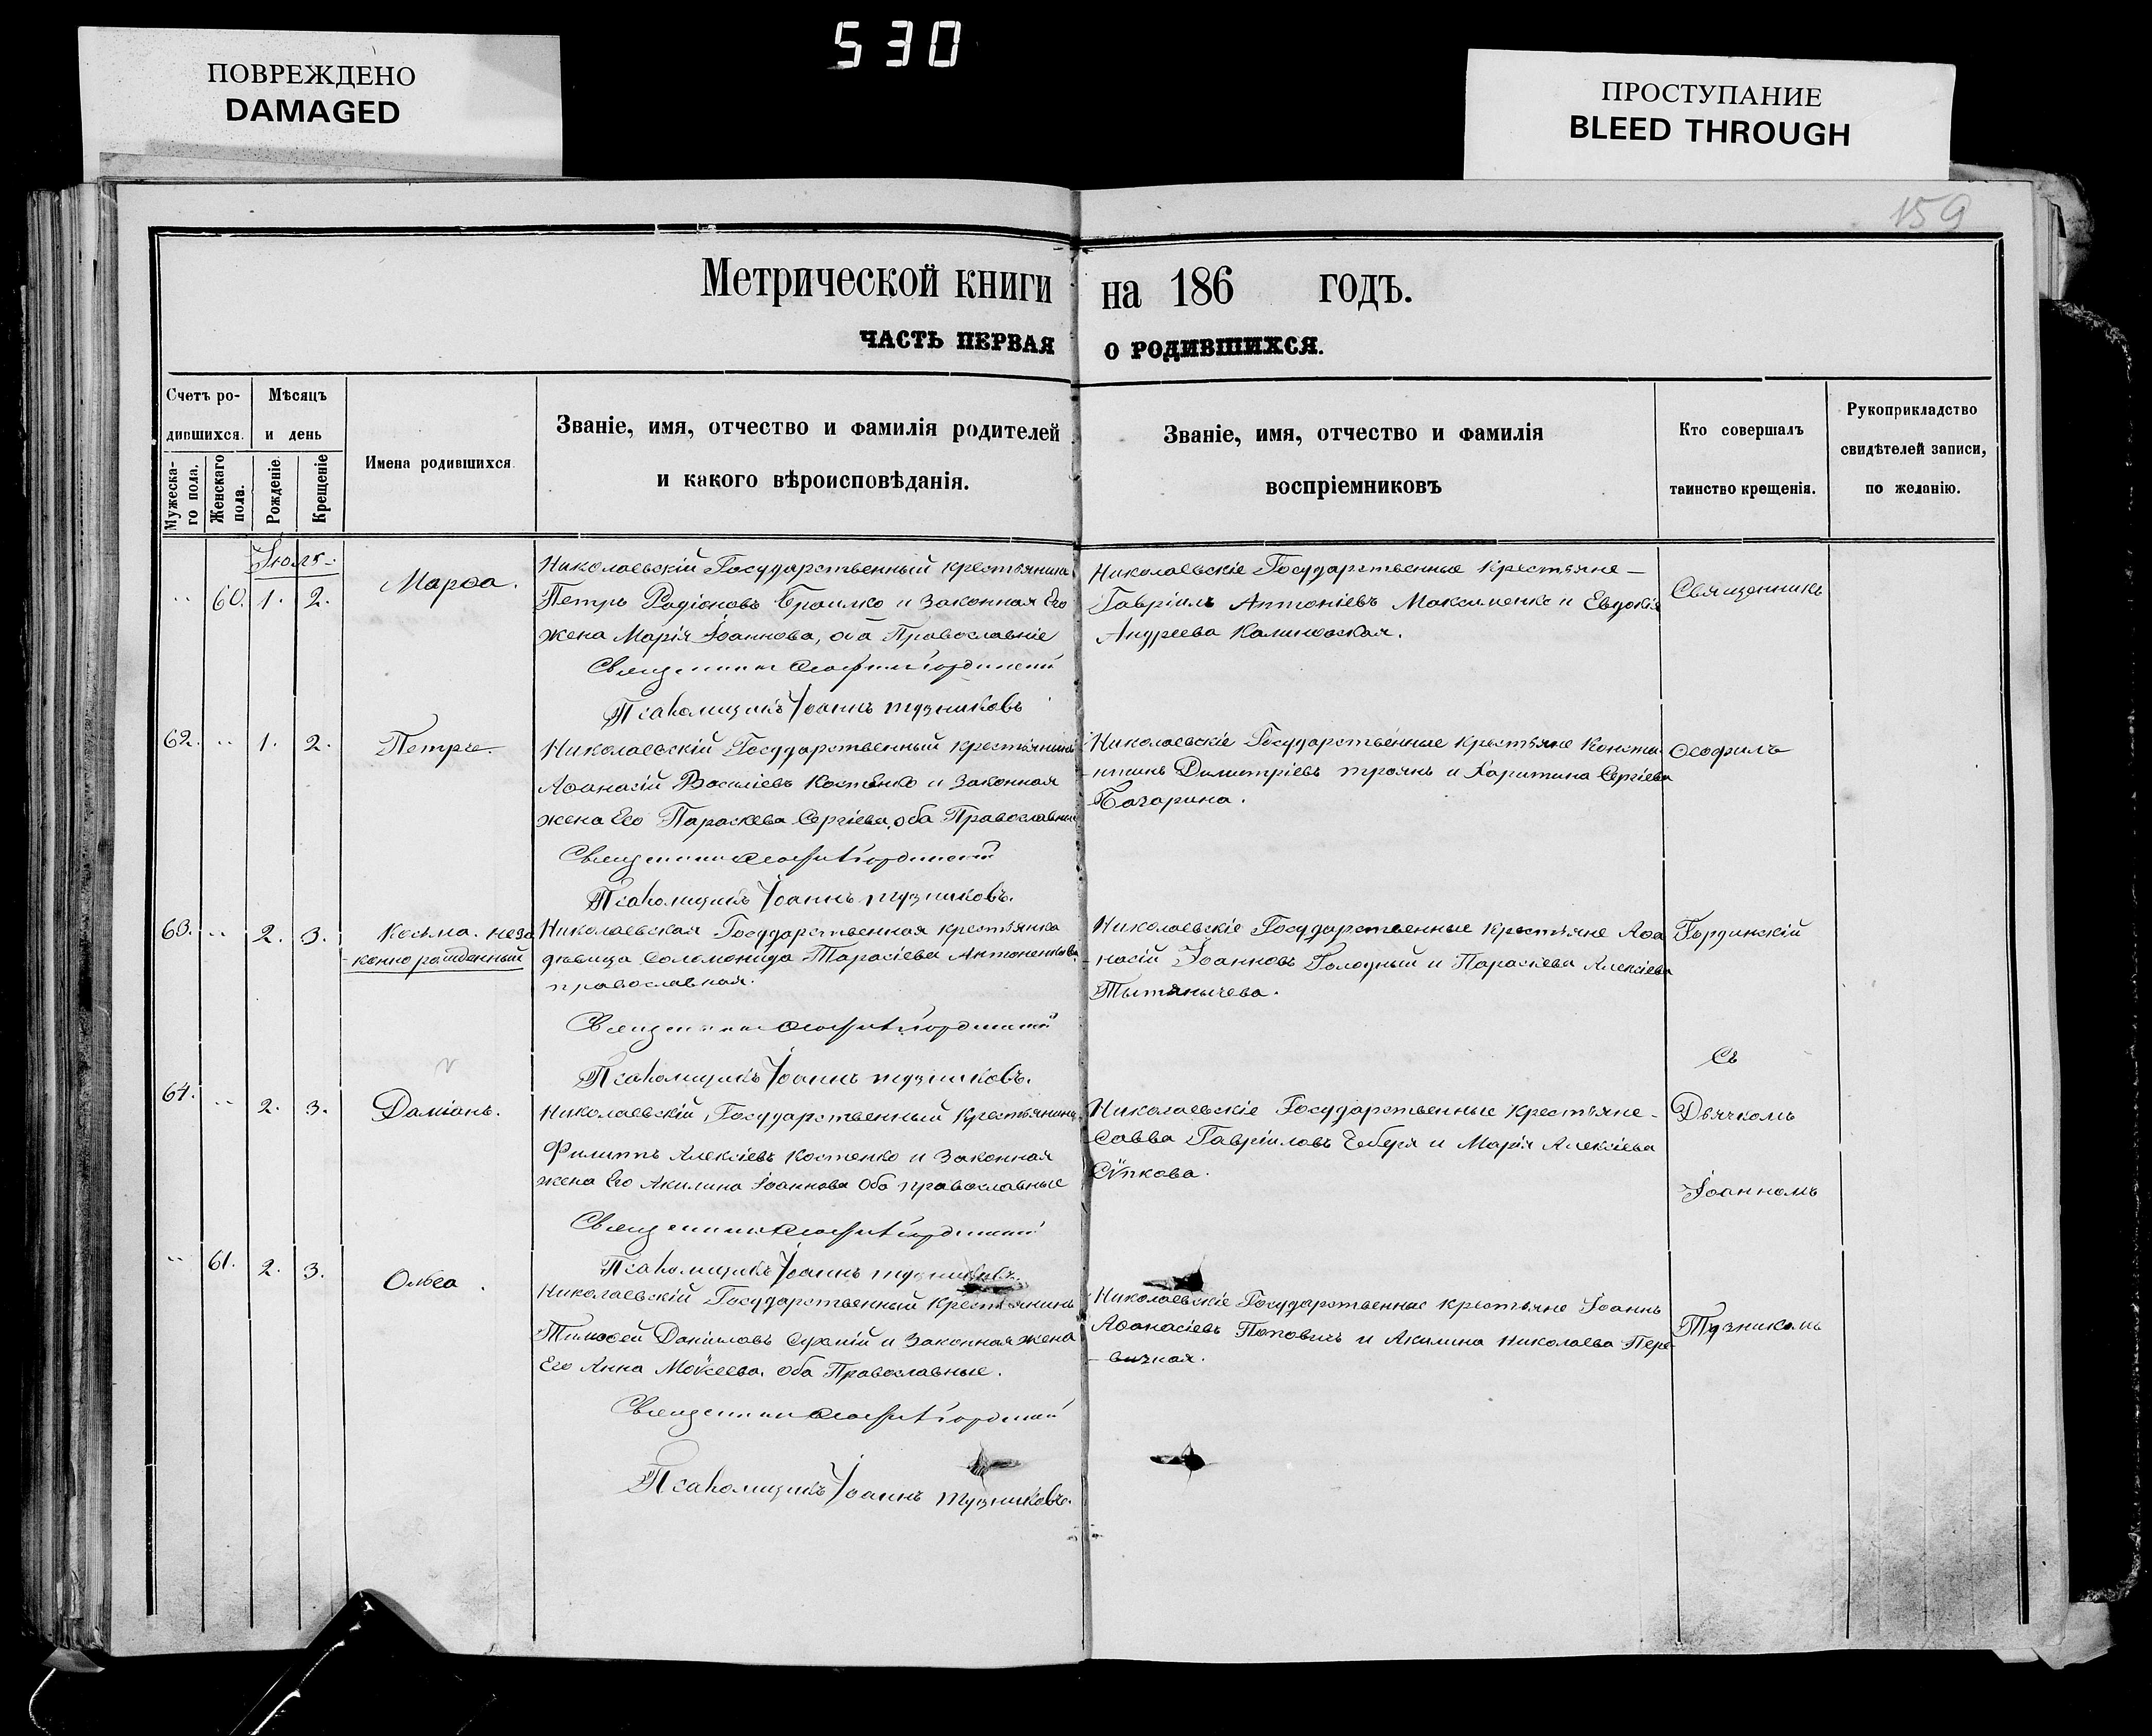 530
ПОВРЕЖДЕНО
DAMAGED
ПРОСТУПАНИЕ
BLEED THROUGH
159
Метрической книги на 186 годъ.
ЧАСТЬ ПЕРВАЯ О РОДИВШИХСЯ.
Счетъ ро-
дившихся.
Мужеска-
го пола.
Женскаго
пола.
Мѣсяцъ
и день
Рожденіе.
Крещеніе
Имена родившихся.
Званіе, имя, отчество и фамилія родителей
и какого вѣроисповѣданія.
Званіе, имя, отчество и фамилія
воспріемниковъ
Кто совершалъ
таинство крещенія.
Рукоприкладство
свидѣтелей записи,
по желанію.
Іюль
" 60. 1. 2.
Марѳа.
Николаевскій Государственный крестьянинъ
Петръ Радіоновъ Браилко и законная Его
жена Марія Іоаннова, оба Православніе
Священникъ Ѳеофилъ Гординскій
Псаломщикъ Іоаннъ Тузниковъ
Николаевскіе Государственные Крестьяне –
Гавріилъ Антоніевъ Максименко и Евдокія
Андреева Калиновская.
Священникъ
62. " 1. 2.
Петръ.
Николаевскій Государственный крестьянинъ
Аѳанасій Василіевъ Костенко и законная
жена Его Параскева Сергіева, оба Православные
Священникъ Ѳеофилъ Гординскій
Псаломщикъ Іоаннъ Тузниковъ.
Николаевскіе Государственные крестьяне Конста-
нтинъ Димитріевъ Троянъ и Харитина Сергіева
Бачарина.
Ѳеофилъ
63. " 2. 3.
Косьма. неза
конно рожденный
Николаевская Государственная крестьянка
дѣвица Соломонида Тарасіева Антоненкова
православная.
Священникъ Ѳеофилъ Гординскій
Псаломщикъ Іоаннъ Тузниковъ.
Николаевскіе Государственные крестьяне Аѳа
насій Іоанновъ Голодный и Параскева Алексіева
Тытянычева.
Гординскій
съ
64. " 2. 3.
Даміанъ.
Николаевскій Государственный Крестьянинъ
Филиппъ Алексіевъ Костенко и законная
жена Его Акилина Іоаннова оба православные
Священникъ Ѳеофилъ Гординскій
Псаломщикъ Іоаннъ Тузниковъ.
Николаевскіе Государственные крестьяне –
Савва Гавріиловъ Геберя и Марія Алексіева
Дьячкомъ
Іоанномъ
" 61. 2. 3.
Ольга.
Николаевскій Государственный Крестьянинъ
Тимоѳей Даніиловъ и законная жена
Его Анна Моѵсеева. оба Православные.
Священникъ Ѳеофилъ Гординскій
Псаломщикъ Іоаннъ Тузниковъ.
Николаевскіе Государственные крестьяне Іоаннъ
Аѳанасіевъ Поповичъ и Акилина Николаева Пере-
вичная.
Тузникомъ